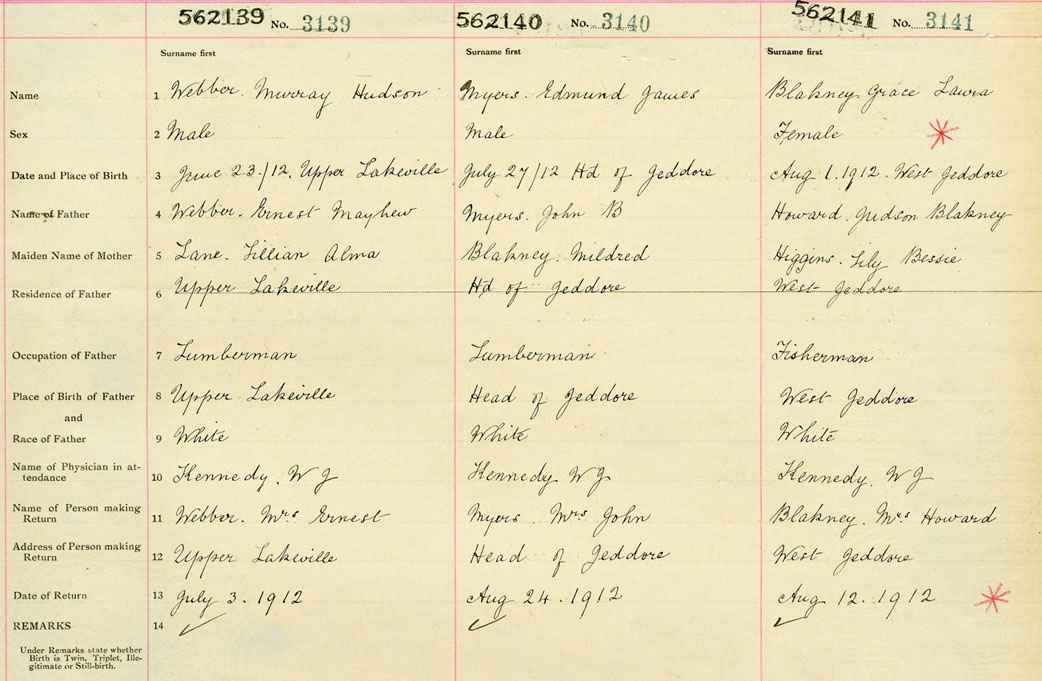 562139 No. 3139 562140 No. 3140 562141 No. 3141
Surname first Surname first Surname first
Name 1 Webber. Murray Hudson Myers. Edmund James Blakney Grace Laura
Sex 2 Male Male Female
Date and Place of Birth 3 June 23/12. Upper Lakeville July 27/12 Hd of Jeddore Aug 1. 1912. West Jeddore
Name of Father 4 Webber. Ernest Mayhew Myers. John B Howard. Judson Blakney
Maiden Name of Mother 5 Lane. Lillian Alma Blakney. Mildred Higgins. Lily Bessie
Residence of Father 6 Upper Lakeville Hd of Jeddore West Jeddore
Occupation of Father 7 Lumberman Lumberman Fisherman
Place of Birth of Father 8 Upper Lakeville Head of Jeddore West Jeddore
and
Race of Father 9 White White White
Name of Physician in at-
tendance 10 Kennedy. W J Kennedy W J Kennedy. W J
Name of Person making
Return 11 Webber. Mrs Ernest Myers Mrs John Blakney. Mrs Howard
Address of Person making
Return 12 Upper Lakeville Head of Jeddore West Jeddore
Date of Return 13 July 3. 1912 Aug 24. 1912 Aug 12. 1912
REMARKS 14
Under Remarks state whether
Birth is Twin, Triplet, Ille-
gitimate or Still-birth.